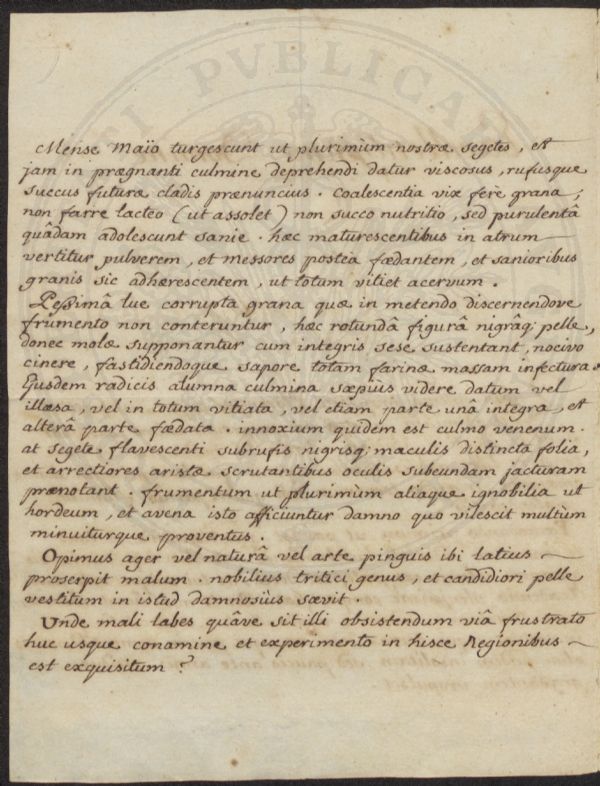 Mense Maïo turgescunt ut plurimùm nostræ segetes, et
jam in prægnanti culmine deprehendi datur viscosus, rufusque
succus futuræ cladis prænuncius. Coalescentia vix fere grana;
non farre lacteo (ut assolet) non succo nutritio, sed purulentâ
quâdam adolescunt sanie. hæc maturescentibus in atrum
vertitur pulverem, et messores postea fædantem, et sanioribus
granis sic adhærescentem, ut totum vitiet acervum.
Pessimâ lue corrupta grana quæ in metendo discernendove
frumento non conteruntur, hæc rotundâ figurâ nigrâq; pelle,
donec molæ supponantur cum integris sese sustentant, nocivo
cinere, fastidiendoque sapore totam farinæ massam infectura.
Ejusdem radicis alumna culmina sæpiùs videre datum vel
illæsa, vel in totum vitiata, vel etiam parte una integra, et
alterâ parte fædata. innoxium quidem est culmo venenum.
at segete flavescenti subrufis nigrisq; maculis distincta folia,
et arrectiores aristæ scrutantibus oculis subeundam jacturam
prænotant. frumentum ut plurimùm aliaque ignobilia ut
hordeum, et avena isto afficiuntur damno quo vilescit multùm
minuiturque proventus.
Opimus ager vel naturâ vel arte pinguis ibi latius
proserpit malum. nobilius tritici genus, et candidiori pelle
vestitum in istud damnosiùs sævit.
Unde mali labes quâve sit illi obsistendum viâ frustrato
huc usque conamine et experimento in hisce Regionibus
est exquisitum?
PUBLICA